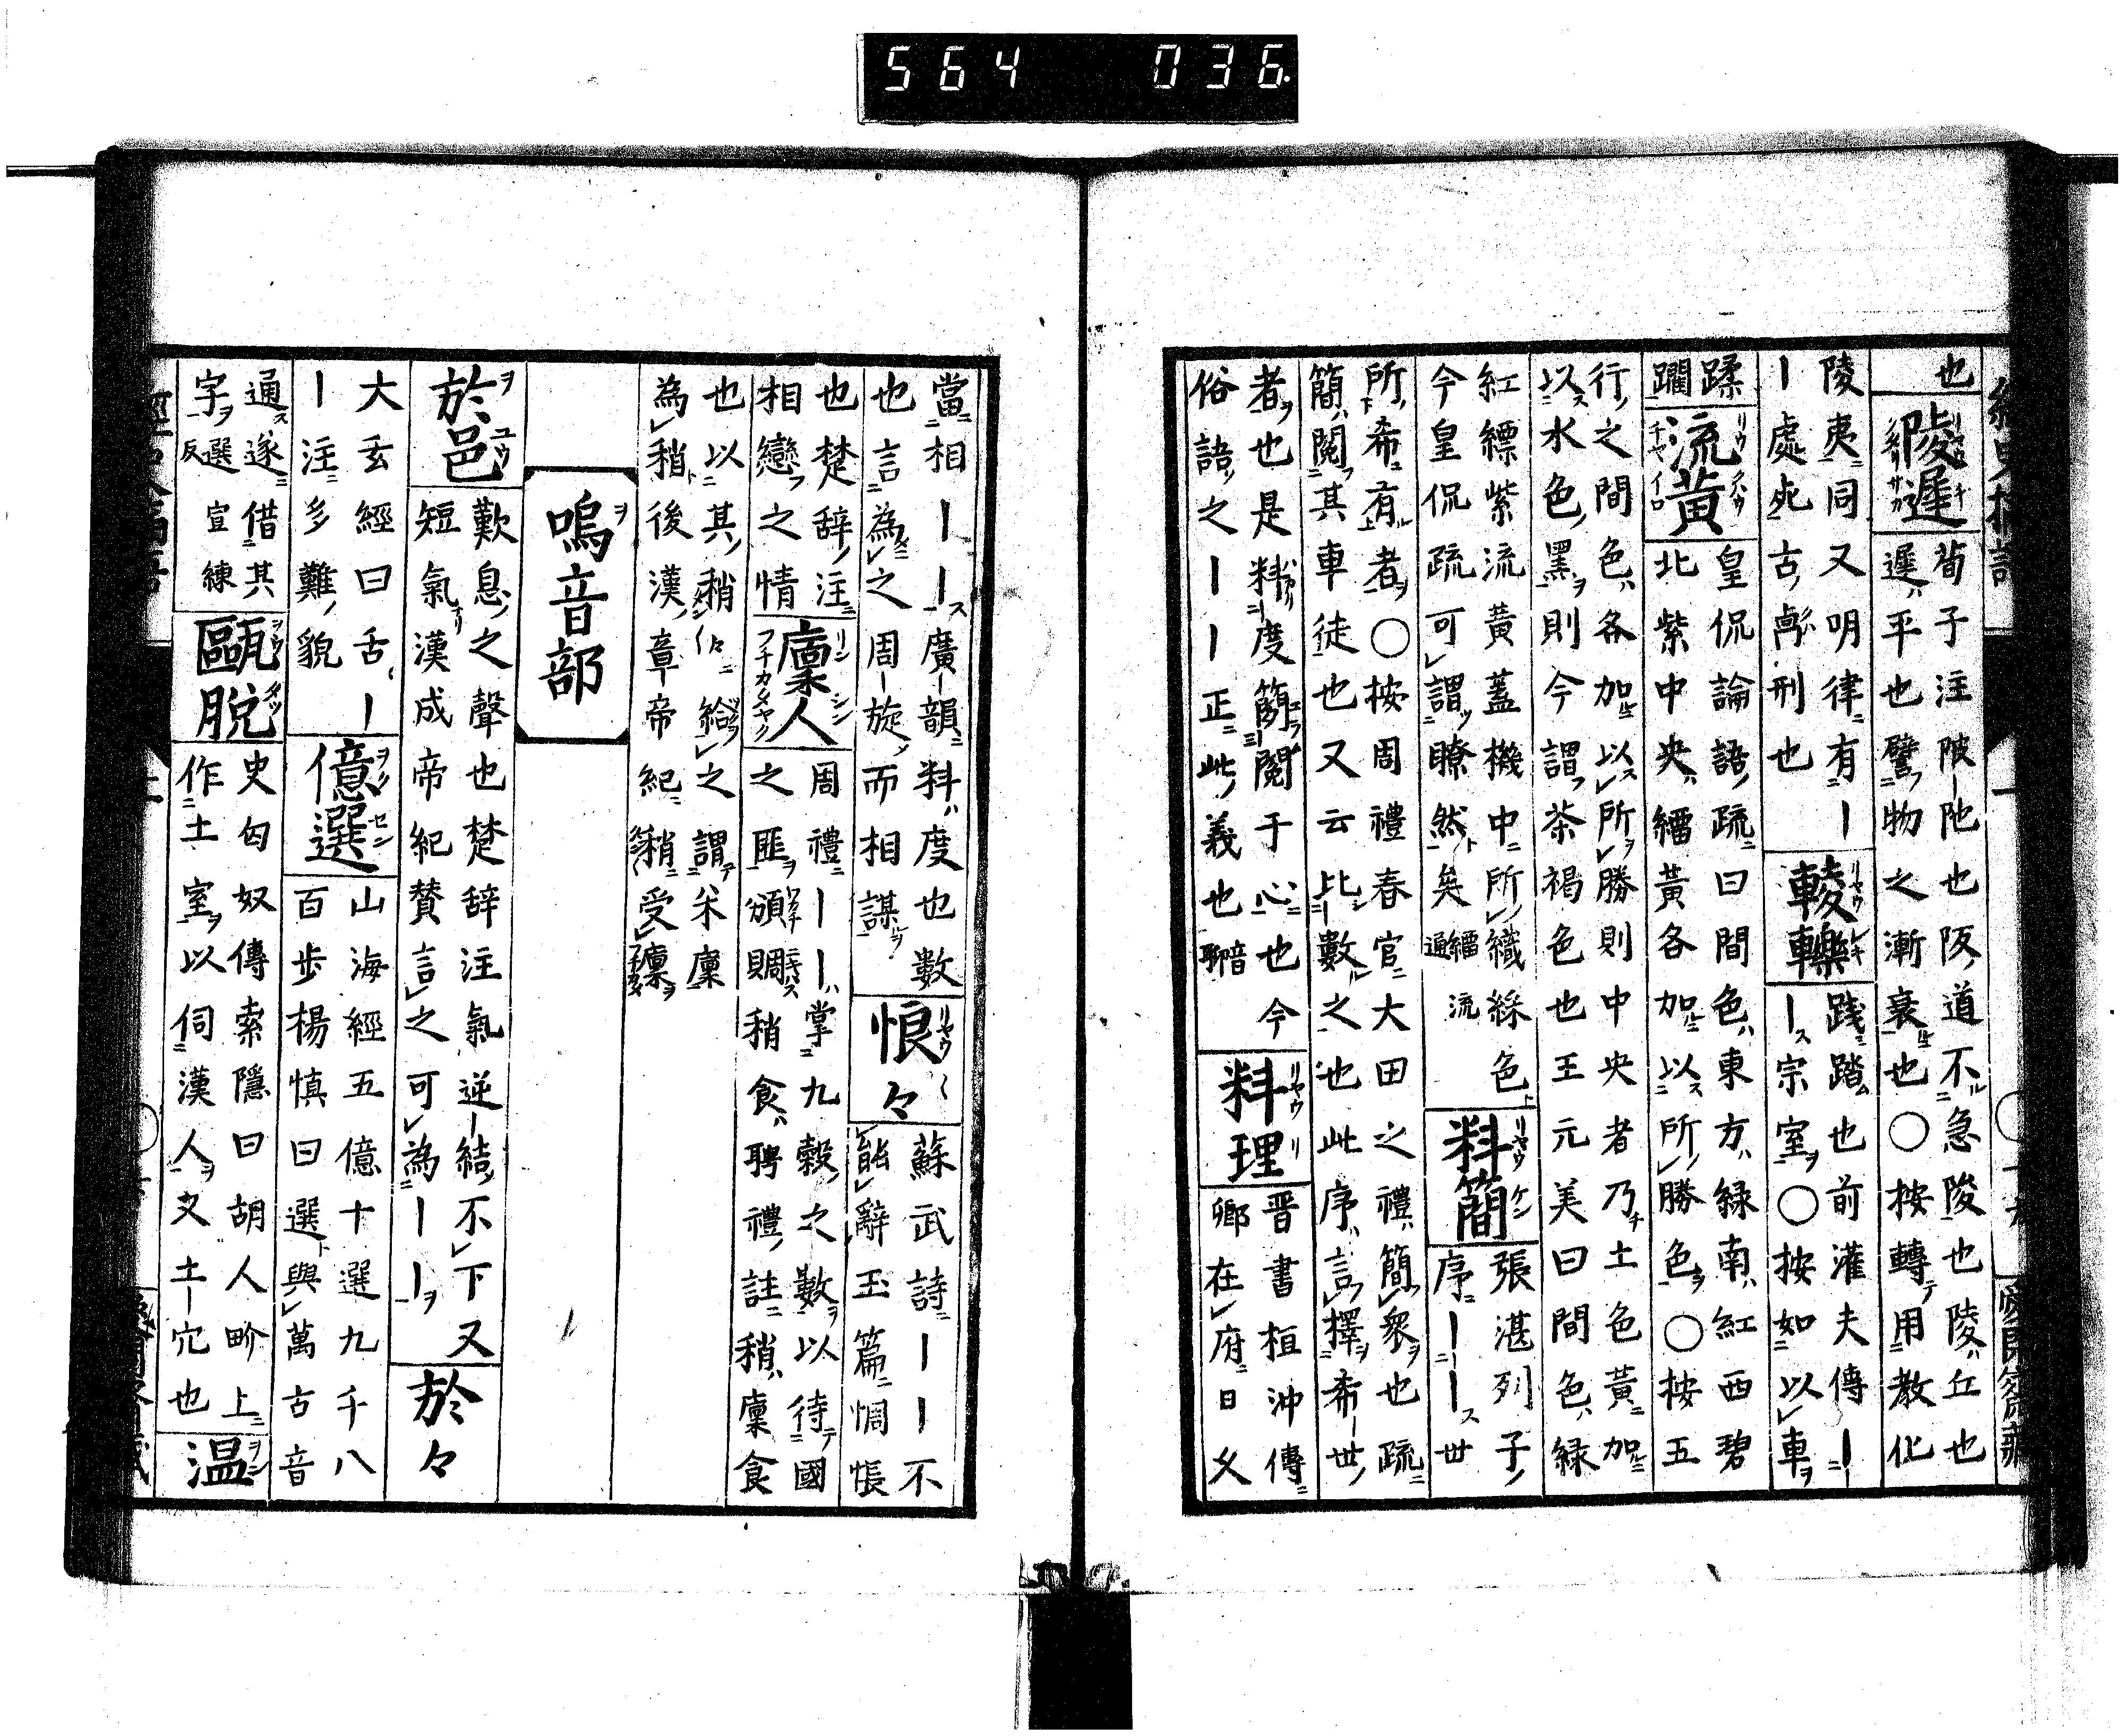 564 036
也
陵遲
荀子注陂陁也阪道不急陵也陵丘也
遲平也譬物之漸衰也○按轉用教化
陵夷同又明律有ー
ー處死古剮刑也
輘轢
践踏也前灌夫傳ー
ース宗室○按如以車
蹂
躙
流黃
皇侃論語疏曰間色東方綠南紅西碧
北紫中央緇黃各加以所勝色○按五
行之間色各加以所勝則中央者乃土色黃加
以水色黑則今謂茶褐色也王元美曰間色綠
紅縹紫流黃蓋機中所織綵色
今皇侃疏可謂瞭然矣緇流通
料簡
張湛列子
序ーー世
所希有者○按周禮春官大田之禮簡衆也疏
簡閱其車徒也又云比數之也此序言擇希世
者也是料度簡閱于心也今
俗語之ーー正此義也
料理
晋書桓沖傳
卿在府日久
當相ーー廣韻料度也數
也言為之周旋而相謀
悢々
蘇武詩ーー不
能辭玉篇惆悵
也楚辞注
相戀之情
廩人
周禮ーー掌九穀之數以待國
之匪頒賙稍食聘禮註稍廩食
也以其稍々給之謂禾廩
為稍後漢章帝紀稍受廩
嗚音部
於邑
歎息之聲也楚辞注氣逆結不下又
短氣漢成帝紀賛言之可為ーー
於々
大玄經曰舌ー
ー注多難貌
億選
山海經五億十選九千八
百步楊慎曰選與萬古音
通遂借其
字選宣練反
甌脫
史匈奴傳索隱曰胡人畍上
作土室以伺漢人又土穴也
温